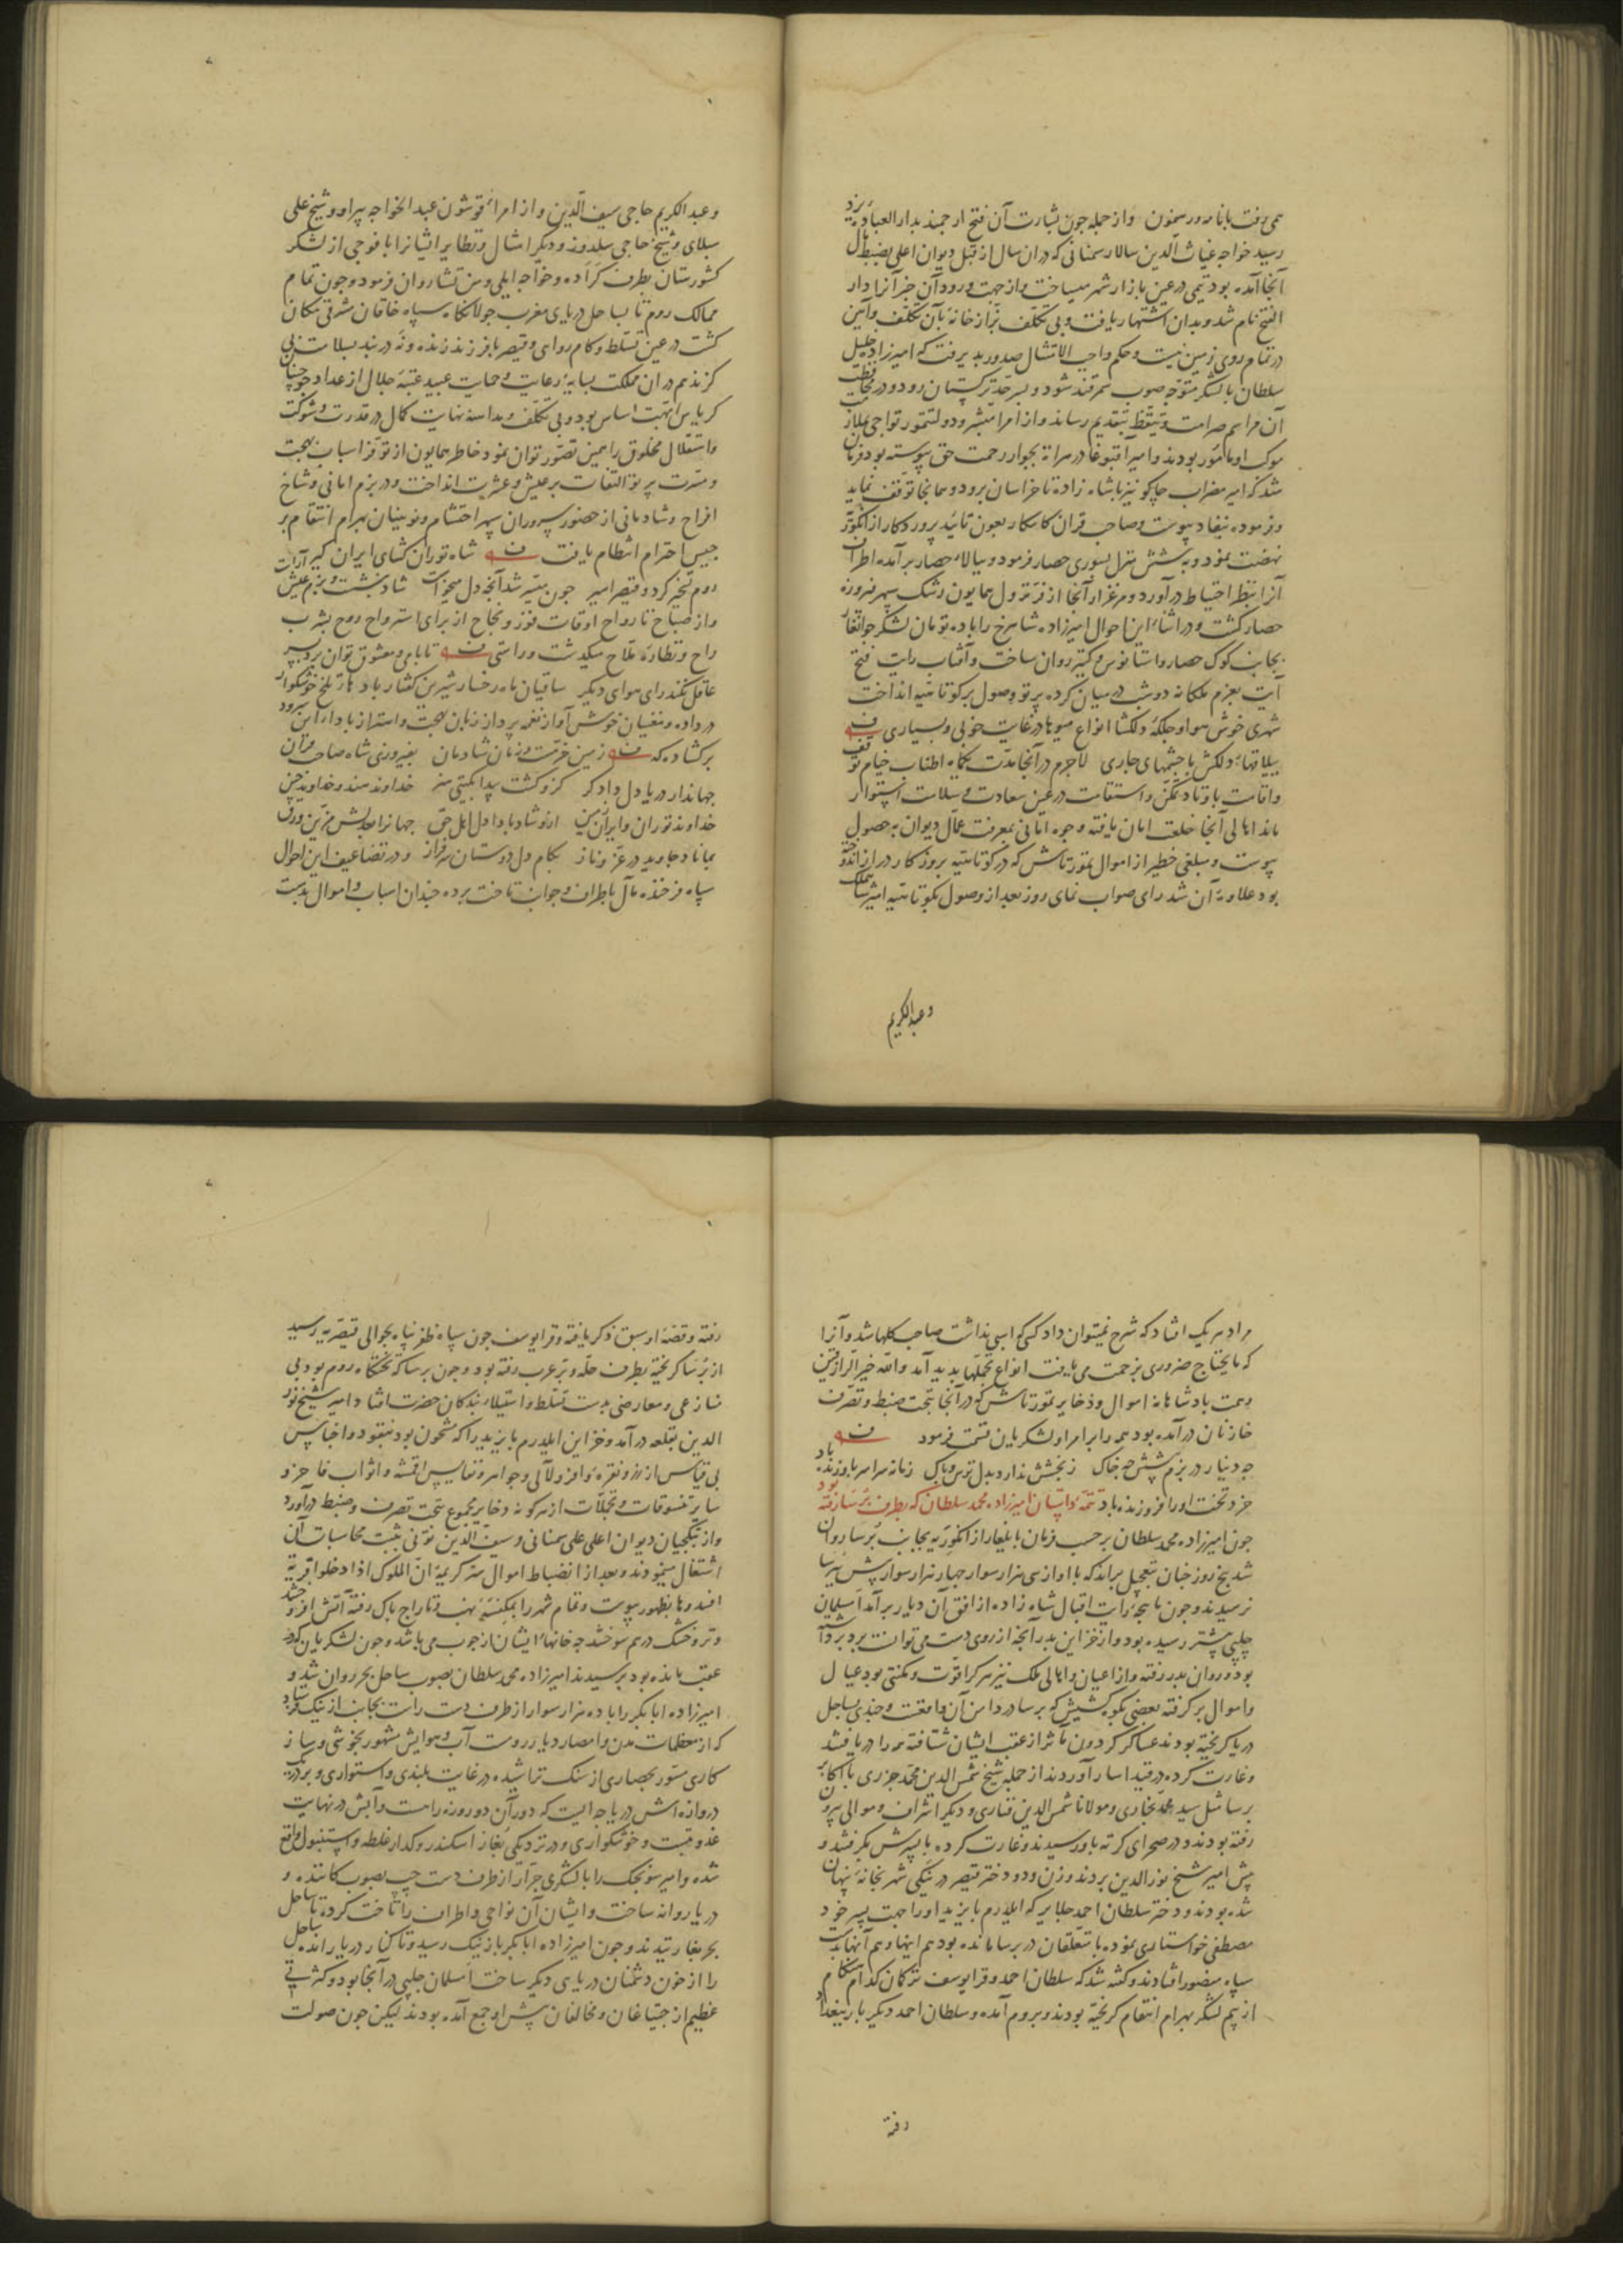 می رفت بانامه و رسمون واز جمله جون بشارت آن فتح ارجمند بدار العباده یزد
رسید خواجه غیاث الدین سالار سمنانی که دران سال از قبل دیوان اعلی بضبط مال
آنجا آمده بود تیمی در عین بازار شهر میساخت واز جهت ورود آن خبر آنرا دار
الفتح نام شد وبدان اشتهار یافت وبی تکلف بزازخانه بآن تکلف وآیین
در تمام روی زمین نیست وحکم واجب الامتثال صدور پذیرفت که امیرزاده خلیل
سلطان با لشکر متوجه صوب سمرقند شود وبسرحد ترکستان رود ودر محافظت
آن مراسم صرامت وتیقظ بتقدیم رساند واز امرا مبشر ودولتتمور تواجی ملازمت
موکب او مامور بودند وامیر آقبوغا در هراة بجوار رحمت حق پیوسته بود فرمان
شد که امیر مضراب جاکو نیز با شاه زاده تا خراسان برود وهمانجا توقف نماید
وفرموده بنفاد پیوست وصاحب قران کامکار بعون تائید پروردکار از انکوریه
نهضت نمود وبه شش منزل بسوری حصار فرمود وببالاء حصار برآمده اطراف
آنرا بنظر احتیاط درآورد ومرغزار آنجا از فر نزول همایون رشک سپهر فیروزه
حصار کشت ودر اثناء این احوال امیرزاده شاهرخ را با ده تومان لشکر جوانغار
بجانب کوک حصار واستانوس وکتیر روان ساخت وآفتاب رایت فتح
آیت بعزم ملکانه دو شب در میان کرده پرتو وصول بر کوتاهیه انداخت
شهری خوش هوا وجلکهٔ دلکشا انواع میوها در غایت خوبی وبسیاری
ییلاقهاء دلکش با جشمهای جاری لاجرم در آنجا مدت یکماه اطناب خیام توقف
واقامت باوتاد تمکن واستقامت در عین سعادت وسلامت استوار
ماند اهالی آنجا خلعت امان یافته وجوه امانی بمعرفت عمال دیوان به حصول
پیوست ومبلغی خطیر از اموال تمورتاش که در کوتاهیه بروزکار دراز اندوخته
بود علاوهٔ آن شد رای صواب نمای روز بعد از وصول بکوتاهیه امیرشاهملک
وعبدالکریم
وعبدالکریم حاجی سیف الدین واز امراء قوشون عبد الخواجه پیر او وشیخ علی
سلدوز ودیکر امثال ونظایر ایشانرا با فوجی از لشکر
کشورستان بطرف کراده وخواجه ایلی ومنتشا روان فرمود وجون تمام
ممالک روم تا بساحل دریای مغرب جولانکاه سپاه خاقان مشرقی مکان
کشت در عین تسلط وکام روایی وقیصر با فرزند زنده
کزندیم دران مملکت بسایهٔ رعایت وحمایت عبید عتبهٔ جلال
کریاس ابهت اساس بود وبی تکلف وبداهنه نهایت کمال در قدرت وشوکت
واستقلال مخلوق را همین تصور توان نمود خاطر همایون از توفر اسباب بهجت
ومسرت پرتو التفات بر عیش وعشرت انداخت ودر بزم امانی
افراح وشادمانی از حضور سروران سپهر احتشام ونوینیان بهرام انتقام بر
احترام انتظام یافت شاه توران کشای ایران کیر
روم تسخیر کرد وقیصر اسیر جون میسر شد آنجه دل میخواست شاد بنشست وبزم عیش آراست
واز صباح تا رواح اوقات فوز ونجاح از برای استرواح روح بشرب
راح ونظارهٔ ملاح میکذشت وراستی تا با می ومعشوق توان برد بسر
عاقل نکند رای هوای دیکر ساقیان ماه رخسار شیرین کفتار بادهاء تلخ خوشکوار
درداده ومغنیان خوش آواز نغمه پرداز زبان بهجت واهتزاز بادا این سرود
برکشاده که زمین خرمست وزمان شادمان بفیروزی شاه صاحب قران
جهاندار دریا دل دادکر کزو کشت پیدا بکیتی هنر خداوند هند وخداوند چین
خداوند توران وایران زمین ازو شاد بادا دل اهل حق جهانرا بعدلش مزین ورق
بماناد جاوید در عز وناز بکام دل دوستان سرفراز ودر تضاعیف این احوال
سپاه فرخنده مآل باطراف وجوانب تاخت برده جندان اسباب واموال بدست
هر یک افتاد که شرح نمیتوان داد کسی که اسبی نداشت صاحب کلها شد وآنرا
که مایحتاج ضروری بزحمت می یافت انواع تجملها پدید آمد والله خیر الرازقین
وهمت پادشاهانه اموال وذخایر تمورتاش که در آنجا بتحت ضبط وتصرف
خازنان درآمده بود همه را بر امرا ولشکریان قسمت فرمود
جه دینار در بزم پیشش جه خاک ز بخشش ندارد بدل ترس وباک زمانه سراسر بدو زنده باد
خرد تخت او را فروزنده باد تتمه داستان امیرزاده محمد سلطان که بطرف برسا رفته بود
جون امیرزاده محمد سلطان بر حسب فرمان بایلغار از انکوریه بجانب برسا روان
شد پنج روز جنان بتعجیل براند که با او از سی هزار سوار جهار هزار سوار پیش
نرسیدند وجون ماهجهٔ رایت اقبال شاه زاده از افق آن دیار برآمد اسلمان
چلپی پیشتر رسیده بود واز خزاین پدر آنجه از روی دست می توانست برد برداشته
بود وروان بدر رفته واز اعیان واهالی ملک نیز هر کرا قوت ومکنتی بود عیال
واموال برکرفته بعضی بکوه کشیش که برسا در دامن آن واقعست وجندی بساحل
دریا کریخته بودند عساکر کردون مآثر از عقب ایشان شتافته همه را دریافتند
وغارت کرده در قید اسار آوردند از جمله شیخ شمس الدین محمد جزری با اکابر
برسا مثل سید محمد بخاری ومولانا شمس الدین فناری ودیکر اشراف وموالی بیرون
رفته بودند ودر صحرای کرته باو رسیدند وغارت کرده با پسرش بکرفتند و
پیش امیر شیخ نورالدین بردند وزن ودو دختر قیصر در ینکی شهر بخانهٔ پنهان
شده بودند ودختر سلطان احمد جلایر که ایلدرم بایزید او را جهت پسر خود
مصطفی خواستاری نموده با متعلقان در برسا مانده بود هم اینها وهم آنها بدست
سپاه منصور افتادند وکفته شد که سلطان احمد وقرا یوسف ترکمان کدام هنکام
از بیم لشکر بهرام انتقام کریخته بودند وبروم آمده وسلطان احمد دیکر بار ببغداد
رفته
رفته وقصهٔ او سبق ذکر یافته وقرا یوسف جون سپاه ظفر پناه بحوالی قیصریه رسید
از برسا کریخته بطرف حله وبر عرب رفته بود وجون برسا که تختکاه روم بود بی
منازعی ومعارضی بدست تسلط واستیلاء بندکان حضرت افتاد امیر شیخ نور
الدین بقلعه درآمد وخزاین ایلدرم بایزید را که مشحون بود بنقود واجناس
بی قیاس از زر ونقره وافر ولآلی وجواهر ونفایس اقمشه واثواب فاخر و
سایر تنسوقات وتجملات از هر کونه وذخایر مجموع بتحت تصرف وضبط درآورد
واز بتکجیان دیوان اعلی علی سمنانی وسیف الدین تونی بثبت محاسبات آن
اشتغال مینمودند وبعد از انضباط اموال سر کریمهٔ ان الملوک اذا دخلوا قریة
افسدوها بظهور پیوست وتمام شهر را بمکنسهٔ نهب وتاراج پاک رفته آتش افروختند
وتر وخشک درهم سوختند جه خانهاء ایشان از جوب می باشد وجون لشکریان که در
عقب مانده بود برسیدند امیرزاده محمد سلطان بصوب ساحل بحر روان شد و
امیرزاده ابابکر را با ده هزار سوار از طرف دست راست بجانب ازنیک فرستاد
که از معظمات مدن وامصار دیار رومست آب وهوایش مشهور بخوشی وساز
کاری مسور بحصاری از سنک تراشیده در غایت بلندی واستواری وبر در یک
دروازه اش دریاجه ایست که دور آن دو روزه راهست وآبش در نهایت
عذوبت وخوشکواری ودر نزدیکی بغاز اسکندر وکدار غلطه واستنبول واقع
شده وامیر سونجک را با لشکری جرار از طرف دست چپ بصوب کاننده و
دریا روانه ساخت وایشان آن نواحی واطراف را تاخت کرده تا ساحل
بحر بغار تیدند وجون امیرزاده ابابکر بازنیک رسید وتا کنار دریا رانده ساحل
را از خون دشمنان دریای دیکر ساخت اسلمان جلپی در آنجا بود وکثرتی
عظیم از جیتاغان ومخالفان پیش او جمع آمده بودند لیکن جون صولت